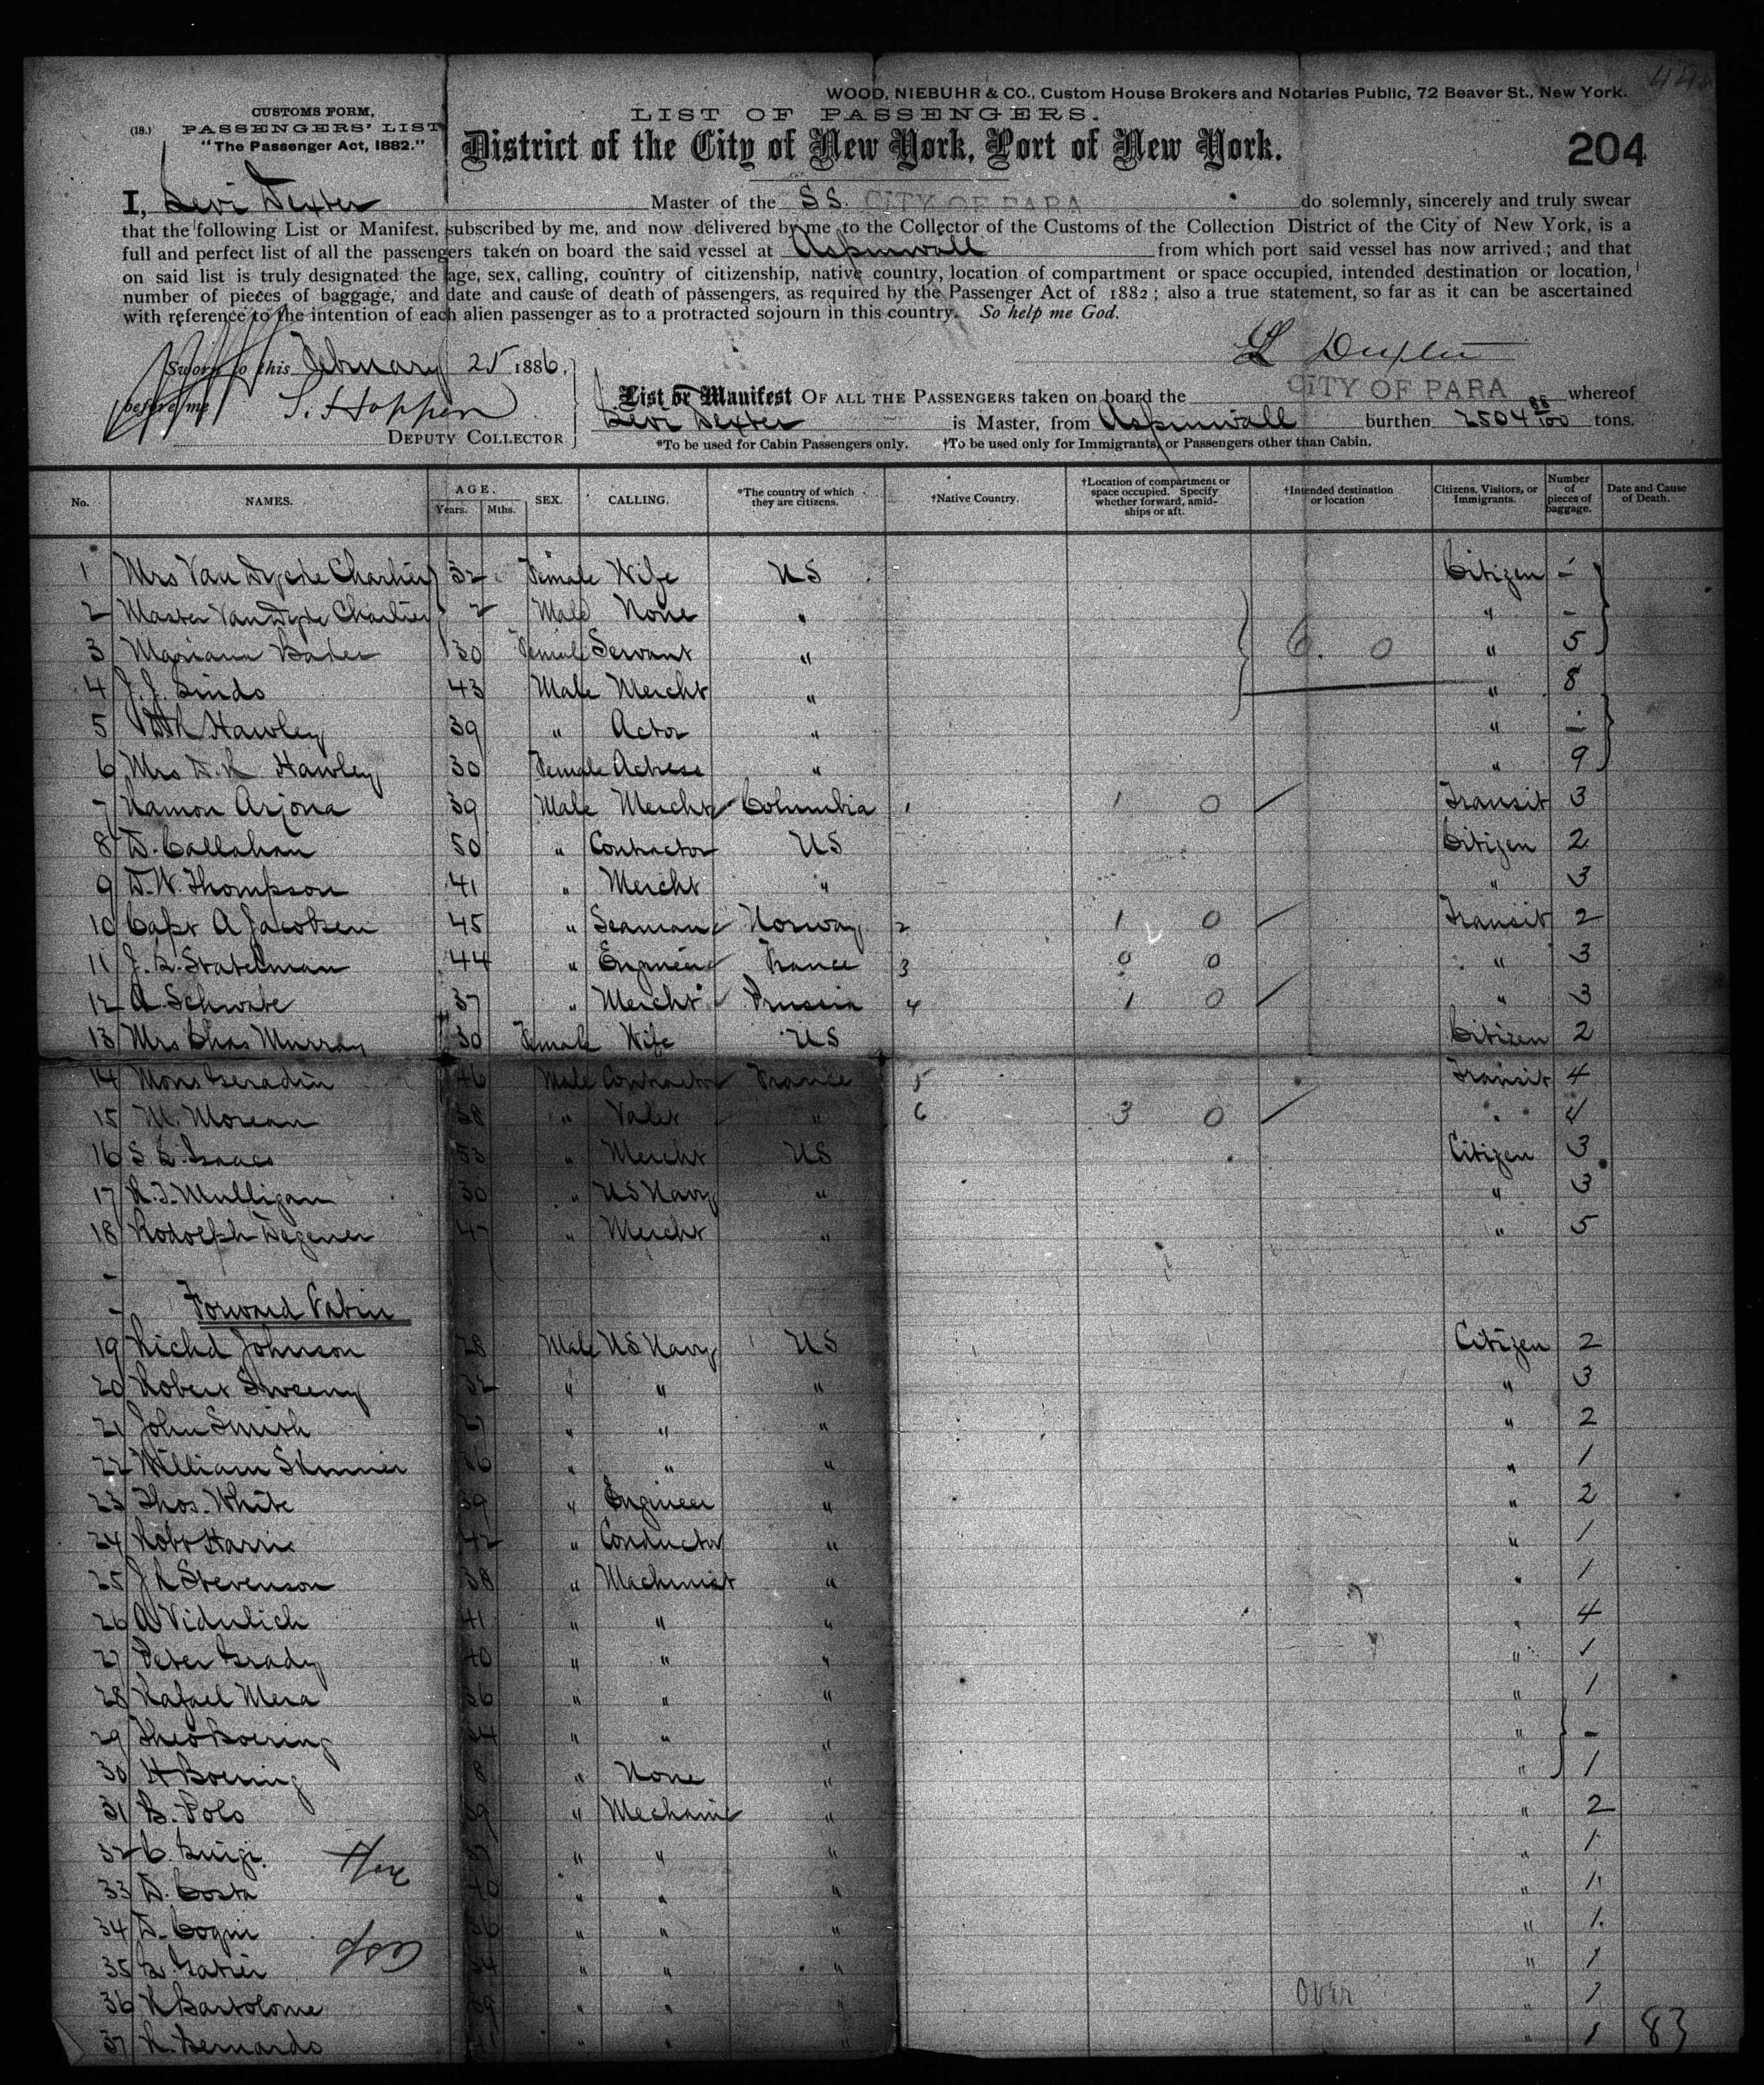 WOOD, NIEBUHR & CO., Custom House Brokers and Notaries Public, 72 Beaver St., New York.
CUSTOMS FORM,
LIST OF PASSENGERS.
(18.) PASSENGERS' LIST
"The Passenger Act, 1882."
District of the City of New York, Port of New York.
204
I, Levi Dexter Master of the SS. CITY OF PARA do solemnly, sincerely and truly swear
that the following List or Manifest, subscribed by me, and now delivered by me to the Collector of the Customs of the Collection District of the City of New York, is a
full and perfect list of all the passengers taken on board the said vessel at Aspinwall from which port said vessel has now arrived; and that
on said list is truly designated the age, sex, calling, country of citizenship, native country, location of compartment or space occupied, intended destination or location,
number of pieces of baggage, and date and cause of death of passengers, as required by the Passenger Act of 1882; also a true statement, so far as it can be ascertained
with reference to the intention of each alien passenger as to a protracted sojourn in this country. So help me God.
L Dexter
Sworn to this February 25 1886.
before me
DEPUTY COLLECTOR
List or Manifest OF ALL THE PASSENGERS taken on board the CITY OF PARA whereof
Levi Dexter is Master, from Aspinwall burthen 2504 88/100 tons.
*To be used for Cabin Passengers only. †To be used only for Immigrants, or Passengers other than Cabin.
No. NAMES. AGE. Years. Mths. SEX. CALLING. *The country of which they are citizens. †Native Country. †Location of compartment or space occupied. Specify whether forward, amidships or aft. †Intended destination or location Citizens, Visitors, or Immigrants. Number of pieces of baggage. Date and Cause of Death.
1 Mrs Van Dycke Charlier 32 Female Wife US Citizen -
2 Master Van Dycke Charlier 2 Male None " " -
3 Mariana Bader 30 Female Servant " 6. 0 " 5
4 J. J. Lindo 43 Male Mercht " " 8
5 Hawley 39 " Actor " " -
6 Mrs Hawley 30 Female Actress " " 9
7 Ramon Arjona 39 Male Mercht Columbia 1 1 0 Transit 3
8 D. Callahan 50 " Contractor US Citizen 2
9 D. W. Thompson 41 " Mercht " " 3
10 Capt A Jacobsen 45 " Seaman Norway 2 1 0 Transit 2
11 Statelman 44 " Engineer France 3 0 0 " 3
12 A Schwabe 37 " Mercht Prussia 4 1 0 " 3
13 Mrs Chas Murray 30 Female Wife US Citizen 2
14 Mons Geradin 46 Male Contractor France 5 Transit 4
15 M. Moreau 38 " Valet " 6 3 0 " 4
16 S. L. Isaacs 53 " Mercht US Citizen 3
17 R. T. Mulligan 30 " US Navy " " 3
18 Rodolph Degener 47 " Mercht " " 5
Forward Cabin
19 Richd Johnson 28 Male US Navy US Citizen 2
20 Robert Sweeny 32 " " " " 3
21 John Smith " " " " 2
22 William Skinner 36 " " " " 1
23 Thos. White 39 " Engineer " " 2
24 Robt Harris 42 " Conductor " " 1
25 Stevenson 38 " Machinist " " 1
26 A Vidulich 41 " " " " 4
27 Peter Grady 40 " " " " 1
28 Rafael Mera 36 " " " " 1
29 Theo Boering 34 " " " " -
30 H Boering 8 " None " " 1
31 B. Polo 39 " Mechanic " " 2
32 C. Luigi 37 " " " " 1
33 D. Costa 40 " " " " 1
34 D. Cogni 36 " " " " 1
35 34 " " " " 1
36 R Bartolome 39 " " " " 1
over
37 R. Bernardo 41 " " " " 1
83